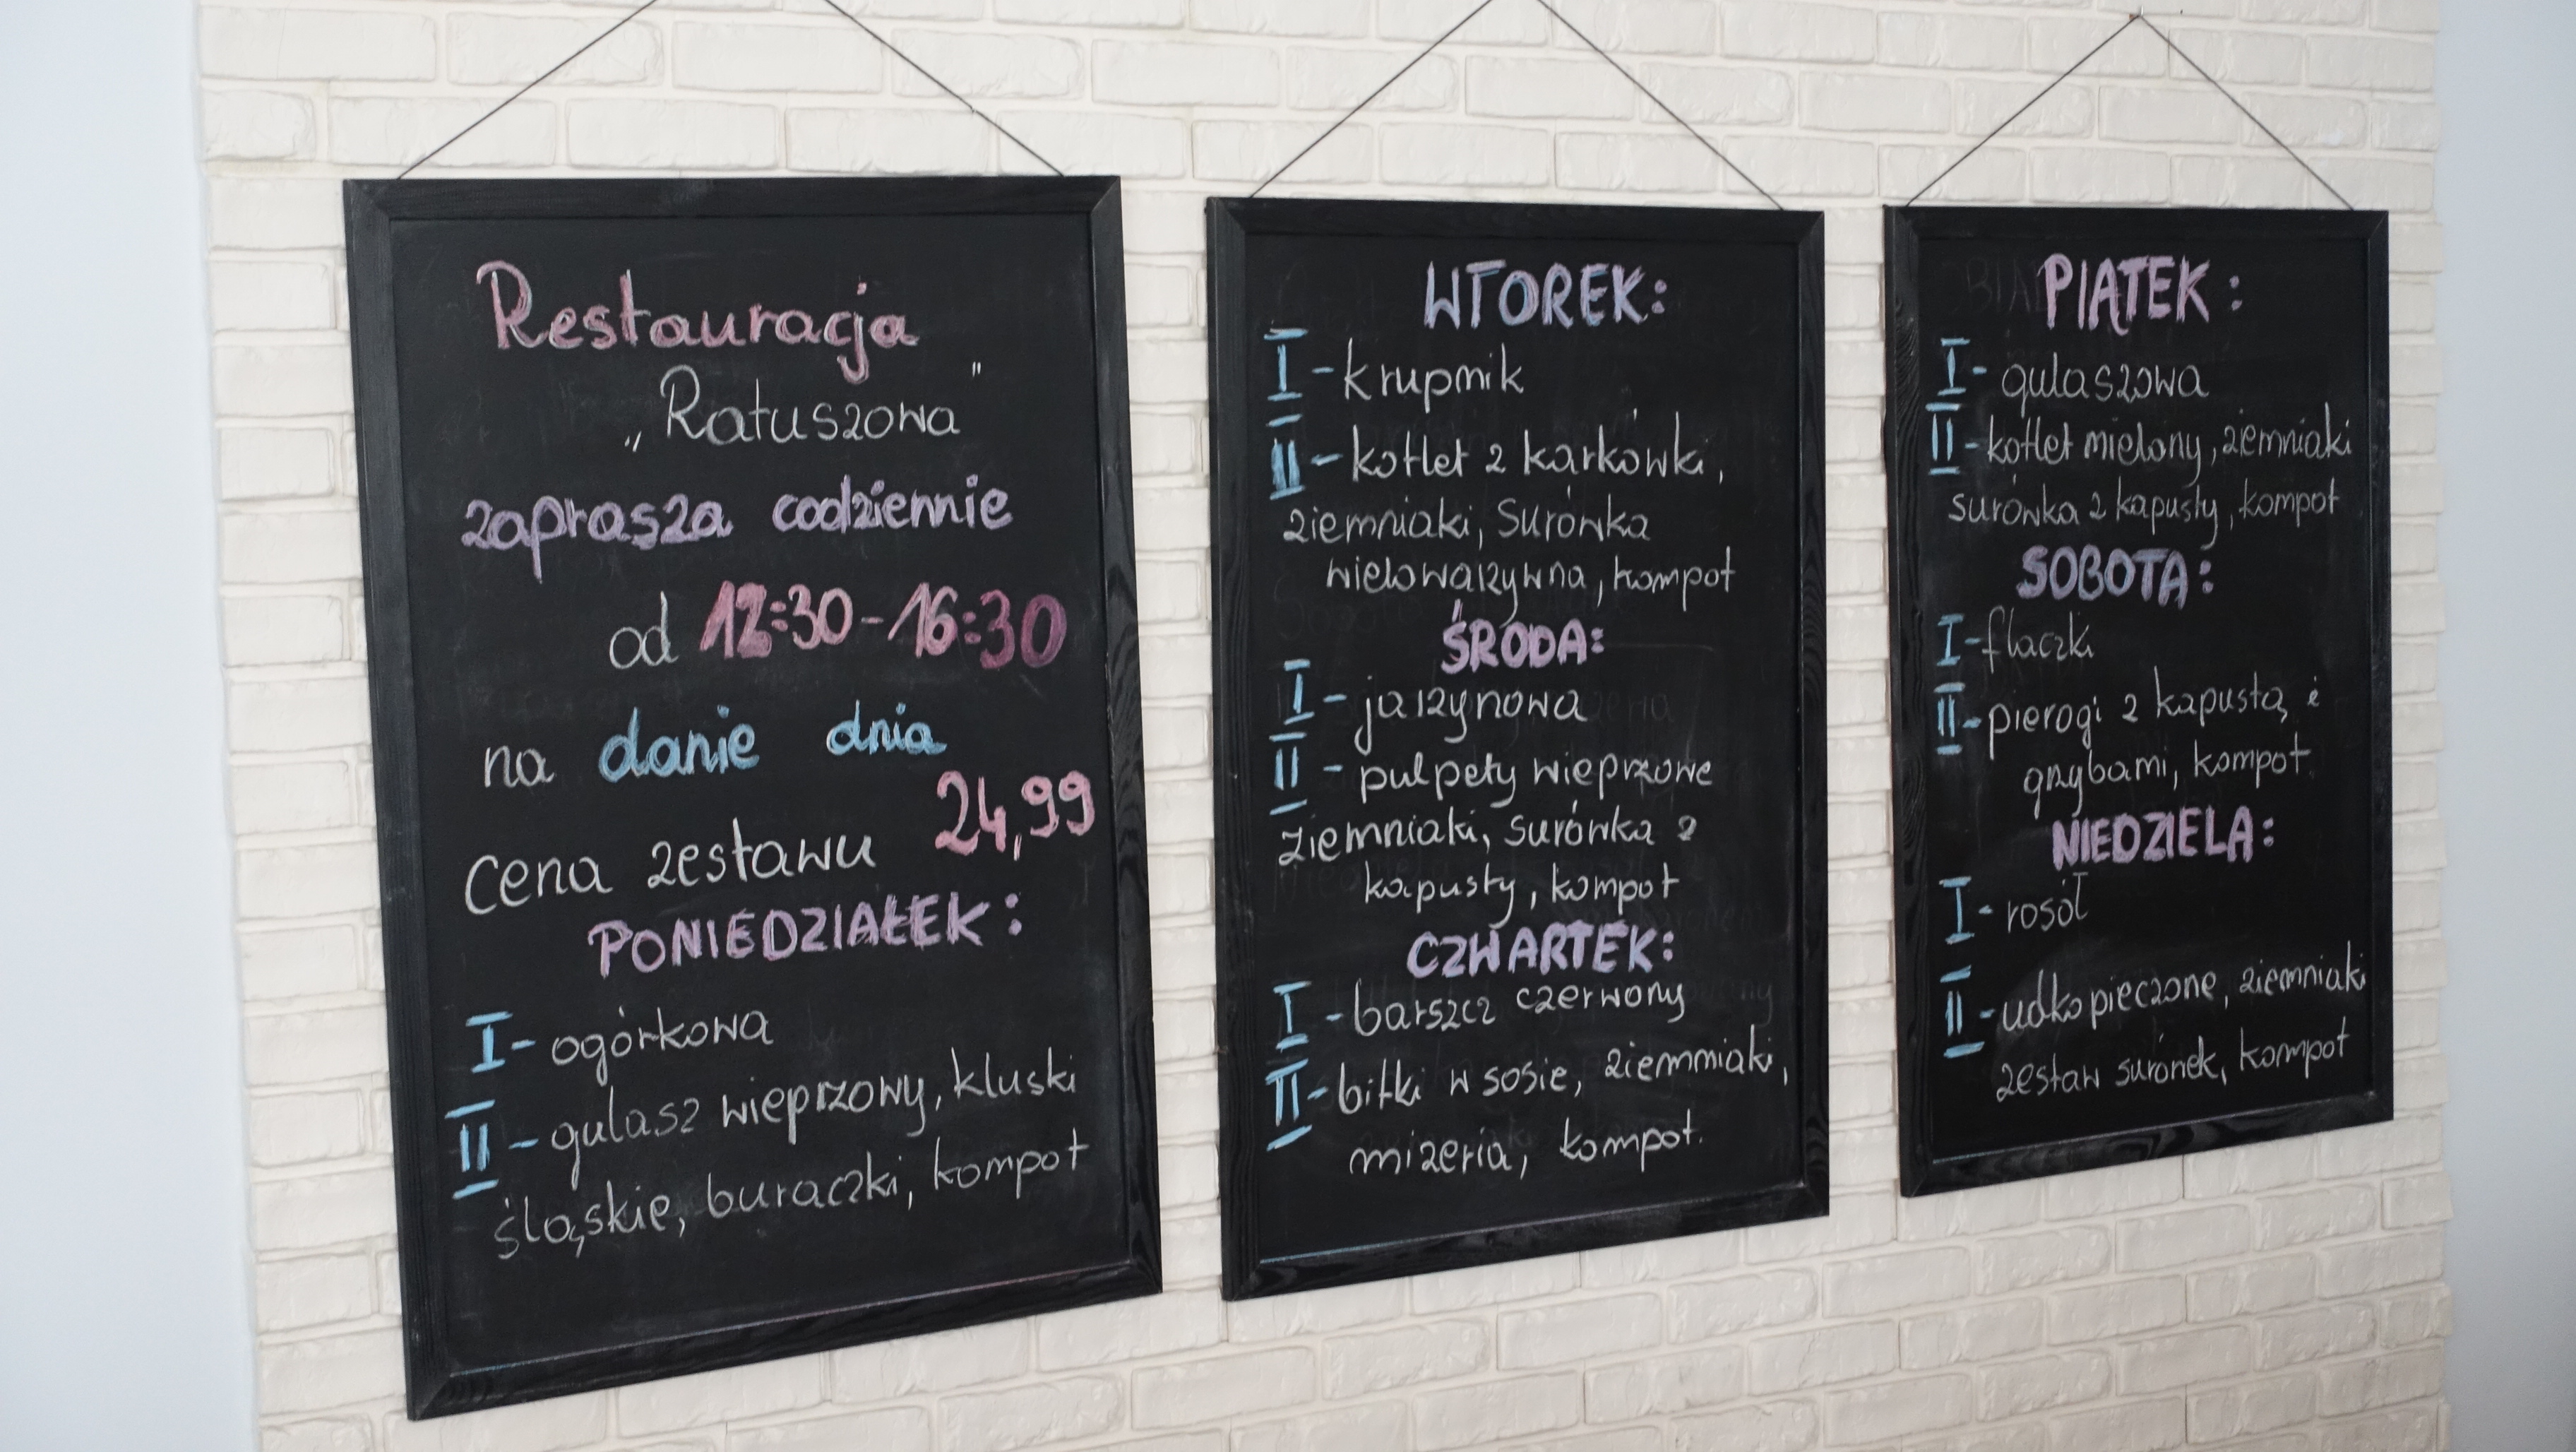 Restauracja
„Ratuszowa"
zaprasza codziennie
od 12:30-16:30
na danie dnia
cena zestawu 24,99
PONIEDZIAŁEK:
I - ogórkowa
II - gulasz wieprzowy, kluski
śląskie, buraczki, kompot
WTOREK:
I - krupnik
II - kotlet z karkówki,
ziemniaki, surówka
wielowarzywna, kompot
ŚRODA:
I - jarzynowa
II - pulpety wieprzowe
ziemniaki, surówka z
kapusty, kompot
CZWARTEK:
I - barszcz czerwony
II - bitki w sosie, ziemniaki,
mizeria, kompot.
PIĄTEK:
I - gulaszowa
II - kotlet mielony, ziemniaki
surówka z kapusty, kompot
SOBOTA:
I - flaczki
II - pierogi z kapustą i
grzybami, kompot
NIEDZIELA:
I - rosół
II - udko pieczone, ziemniaki
zestaw surówek, kompot